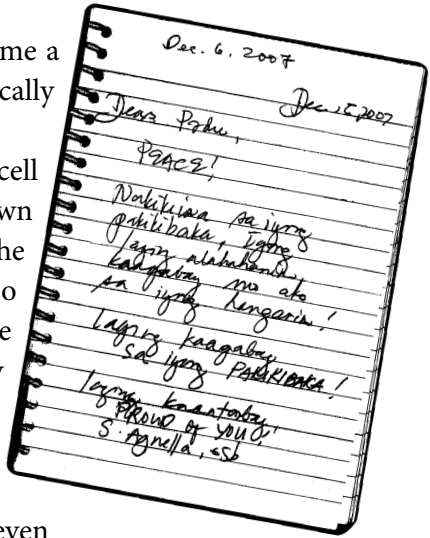 me a
cally
cell
wn
he
o
e
even
Dec. 6, 2007
Dec. 5, 2007
Dear Padre,
PEACE!
Nakikiisa sa iyong
pakikibaka, Iyong
laging alalahanin,
kaagabay mo ako
sa iyong hangarin!
Laging kaagabay
sa iyong PAKIKIBAKA!
Laging kaantabay,
PROUD OF YOU!
S. Agnella,